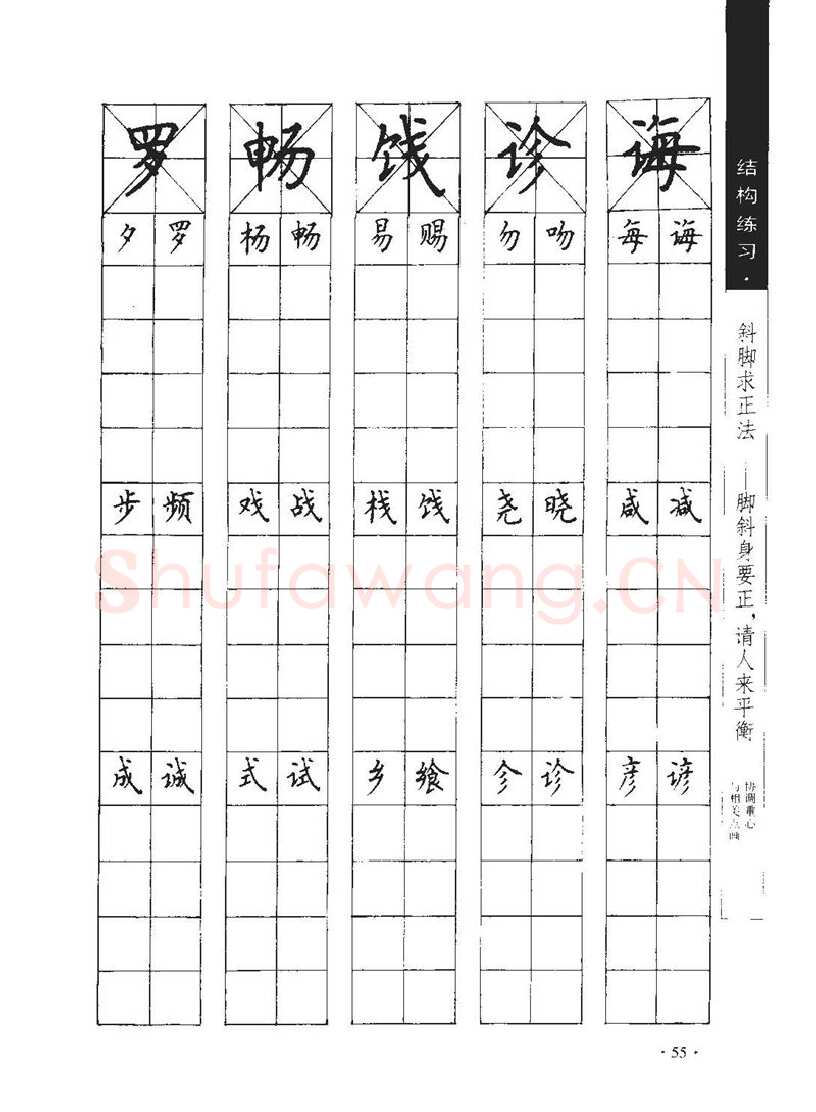 罗 畅 饯 诊 诲
夕 罗 杨 畅 易 赐 勿 吻 每 诲
步 频 戏 战 栈 饯 尧 晓 咸 减
成 诚 式 试 乡 飨 㐱 诊 彦 谚
结构练习·
斜脚求正法——脚斜身要正,请人来平衡
协调重心
与相关点画
Shufawang.CN
·55·